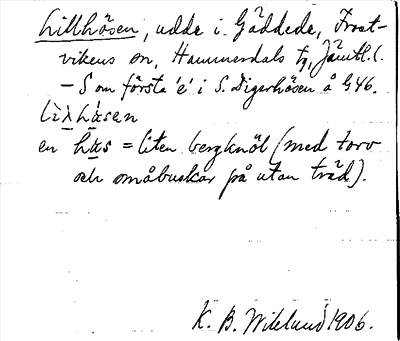 Lillhåsen, udde i Gäddede, Frost-
vikens sn, Hammerdals tg, Jämtl. l.
– S om första 'e' i S. Digerhåsen å G46.
en hås = liten bergknöl (med torv
och småbuskar på utan träd).
K. B. Wiklund 1906.